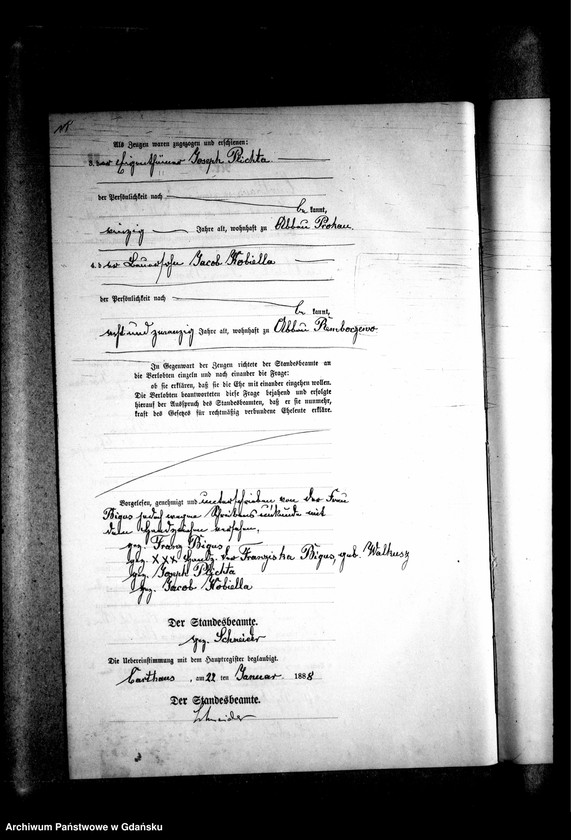 Als Zeugen waren zugezogen und erschienen:
3. der Eigenthümer Joseph Plichta
der Persönlichkeit nach
be kannt,
Jahre alt, wohnhaft zu Abbau Prokau.
4. der Bauersohn Jacob Kobiella
der Persönlichkeit nach
be kannt,
acht und zwanzig Jahre alt, wohnhaft zu Abbau Remboczewo
In Gegenwart der Zeugen richtete der Standesbeamte an
die Verlobten einzeln und nach einander die Frage:
ob sie erklären, daß sie die Ehe mit einander eingehen wollen.
Die Verlobten beantworteten diese Frage bejahend und erfolgte
hierauf der Ausspruch des Standesbeamten, daß er sie nunmehr,
kraft des Gesetzes für rechtmäßig verbundene Eheleute erkläre.
Vorgelesen, genehmigt und unterschrieben von der Frau
Bigus jedoch wegen Schreibensunkunde mit
dem Handzeichen versehen.
gez. Franz Bigus
gez. XXX Handz. der Franziska Bigus, geb. Walkusz
gez. Joseph Plichta
gez. Jacob Kobiella
Der Standesbeamte.
gez. Schneider
Die Uebereinstimmung mit dem Hauptregister beglaubigt.
Carthaus, am 22 ten Januar 1888
Der Standesbeamte.
Schneider
Archiwum Państwowe w Gdańsku